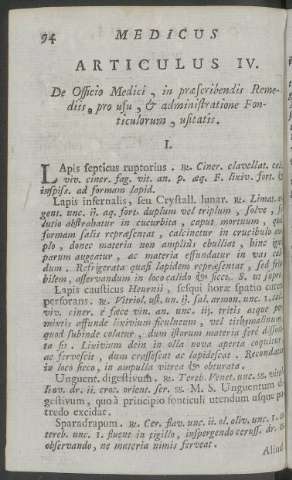 94 MEDICUS
ARTICULUS IV.
De Officio Medici, in præscribendis Reme-
diis, pro usu, & administratione Fon-
ticulorum, usitatis.
I.
LApis septicus ruptorius. ℞. Ciner. clavellat.
viv. ciner. fag. vit. an. p. æq. F. lixiv. fort. &
inspiss. ad formam lapid.
Lapis infernalis, seu Crystall. lunar. ℞. Limat.
gent. unc. ij. aq. fort. duplum vel triplum, solve,
lutio abstrahatur in cucurbita, caput mortuum,
formam salis repræsentat, calcinetur in crucibulo
plo, donec materia non amplius ebulliat, hinc
parum augeatur, ac materia effundatur in vas
dum. Refrigerata quasi lapidem repræsentat, sed
bilem, asservandum in loco calido & sicco. S. ut supra.
Lapis causticus Heurnii, sesqui horæ spatio cutem
perforans. ℞. Vitriol. ust. un. ij. sal. armon. unc. 1.
viv. ciner. è fæce vin. an. unc. iij. tritis atque
mixtis affunde lixivium ficulneum, vel tithymalinum
quod subinde colatur, dum istorum materia ferè
ta sit. Lixivium dein in olla nova aperta coquitur,
ac fervescit, dum crassescat ac lapidescat. Recondatur
in loco sicco, in ampulla vitrea & obturata.
Unguent. digestivum. ℞. Tereb. Venet. unc. ss.
lj. ov. dr. ii. croc. orient. scr. ss. M. S. Unguentum di-
gestivum, quo à principio fonticuli utendum usque
tredo excidat.
Sparadrapum. ℞. Cer. flav. unc. ii. ol. oliv. unc. 1.
tereb. unc. 1. fluent in sigillo, inspergendo ceruss. dr.
observando, ne materia nimis ferveat.